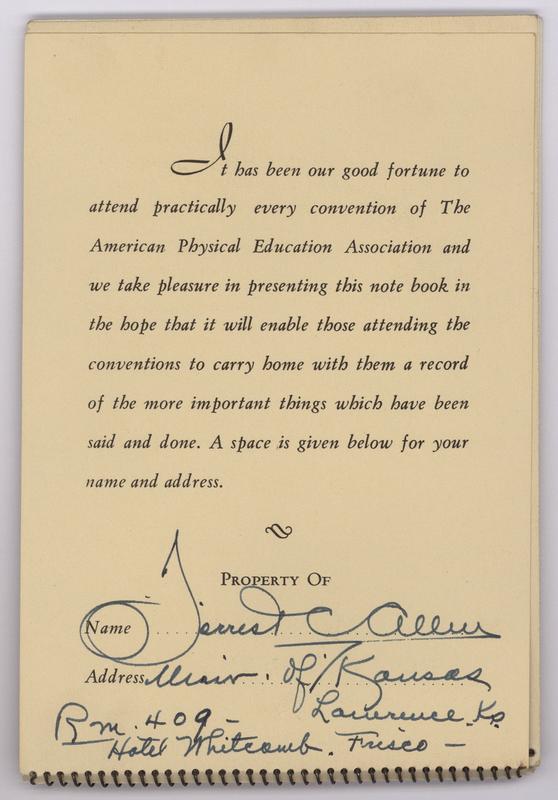 It has been our good fortune to
attend practically every convention of The
American Physical Education Association and
we take pleasure in presenting this note book in
the hope that it will enable those attending the
conventions to carry home with them a record
of the more important things which have been
said and done. A space is given below for your
name and address.
PROPERTY OF
Name Forrest C Allen
Address Univ. of Kansas
Lawrence Ks.
Rm. 409 -
Hotel Whitcomb. Frisco -